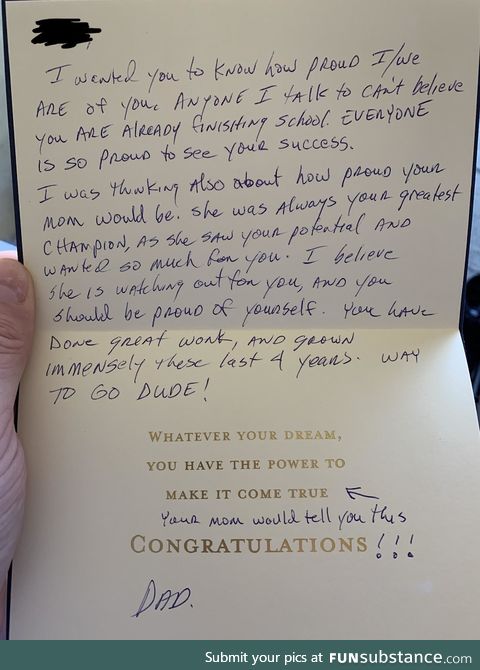 I wanted you to know how proud I/we
are of you. Anyone I talk to can't believe
you are already finishing school. Everyone
is so proud to see your success.
I was thinking also about how proud your
mom would be. She was always your greatest
champion, as she saw your potential and
wanted so much for you. I believe
she is watching out for you, and you
should be proud of yourself. You have
done great work, and grown
immensely these last 4 years. Way
to go dude!
WHATEVER YOUR DREAM,
YOU HAVE THE POWER TO
MAKE IT COME TRUE
Your mom would tell you this
CONGRATULATIONS!!!
Dad.
Submit your pics at FUNsubstance.com